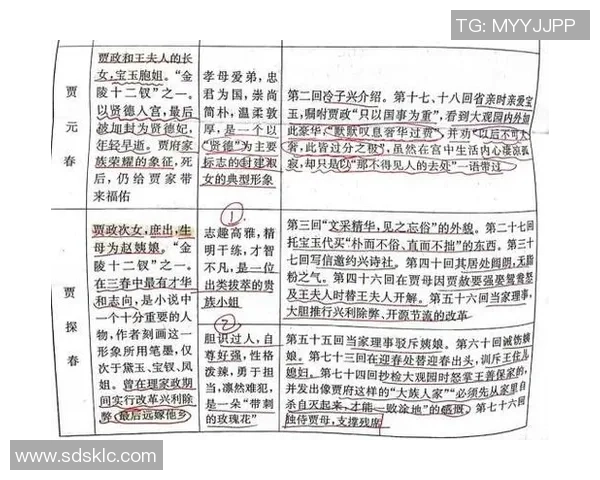 TG: MYYJJPP
贾元春
贾政和王夫人的长
女,宝玉胞姐。“金
陵十二钗”之一。
以贤德人宫,最后
被加封为贤德妃,
年轻早逝。贾府家
族荣耀的象征,死
后,仍给贾家带
来福佑
孝母爱弟,忠
君为国,崇尚
简朴,温柔敦
厚,是一个以
“贤德”为主要
标志的封建淑
女的典型形象
第二回冷子兴介绍。第十七、十八回省亲时亲爱宝
玉,嘱咐贾政“只以国事为重”,看到大观园内外如
此豪华,“默默叹息奢华过费”,并劝“以后不可太
奢,此皆过分之极”,虽然在宫中生活内心凄凉孤
寂,却只是以“那不得见人的去处”一语带过
贾探春
贾政次女,庶出,生
母为赵姨娘。“金
陵十二钗”之一。
在三春中最有才华
和志向,是小说中
一个十分重要的人
物,作者刻画这一
形象所用笔墨,仅
次于黛玉、宝钗、凤
姐。曾在理家政期
间实行改革兴利除
弊,最后远嫁他乡
①
志趣高雅,精
明干练,才智
不凡,是一位
出类拔萃的贵
族小姐
②
胆识过人,自
尊好强,性格
泼辣,勇于担
当,凛然难犯,
是一朵“带刺
的玫瑰花”
第三回“文采精华,见之忘俗”的外貌。第二十七回
托宝玉代买“朴而不俗、直而不拙”的东西。第三十
七回写信邀约兴诗社。第四十回其居处阔朗,无脂
粉之气。第四十六回在贾母因贾赦要强娶鸳鸯怒
及王夫人时替王夫人开解。第五十六回当家理事,
大胆推行兴利除弊、开源节流的改革
第五十五回当家理事驳斥姨娘。第六十回诫妨姨
娘。第七十三回在迎春处替迎春出头,训斥王住儿
媳妇。第七十四回抄检大观园时怒掌王善保家的,
并发出像贾府这样的“大族人家”“必须先从家里自
杀自灭起来,才能一败涂地”的感慨。第七十六回
独侍贾母,支撑残席
www.sdsklc.com